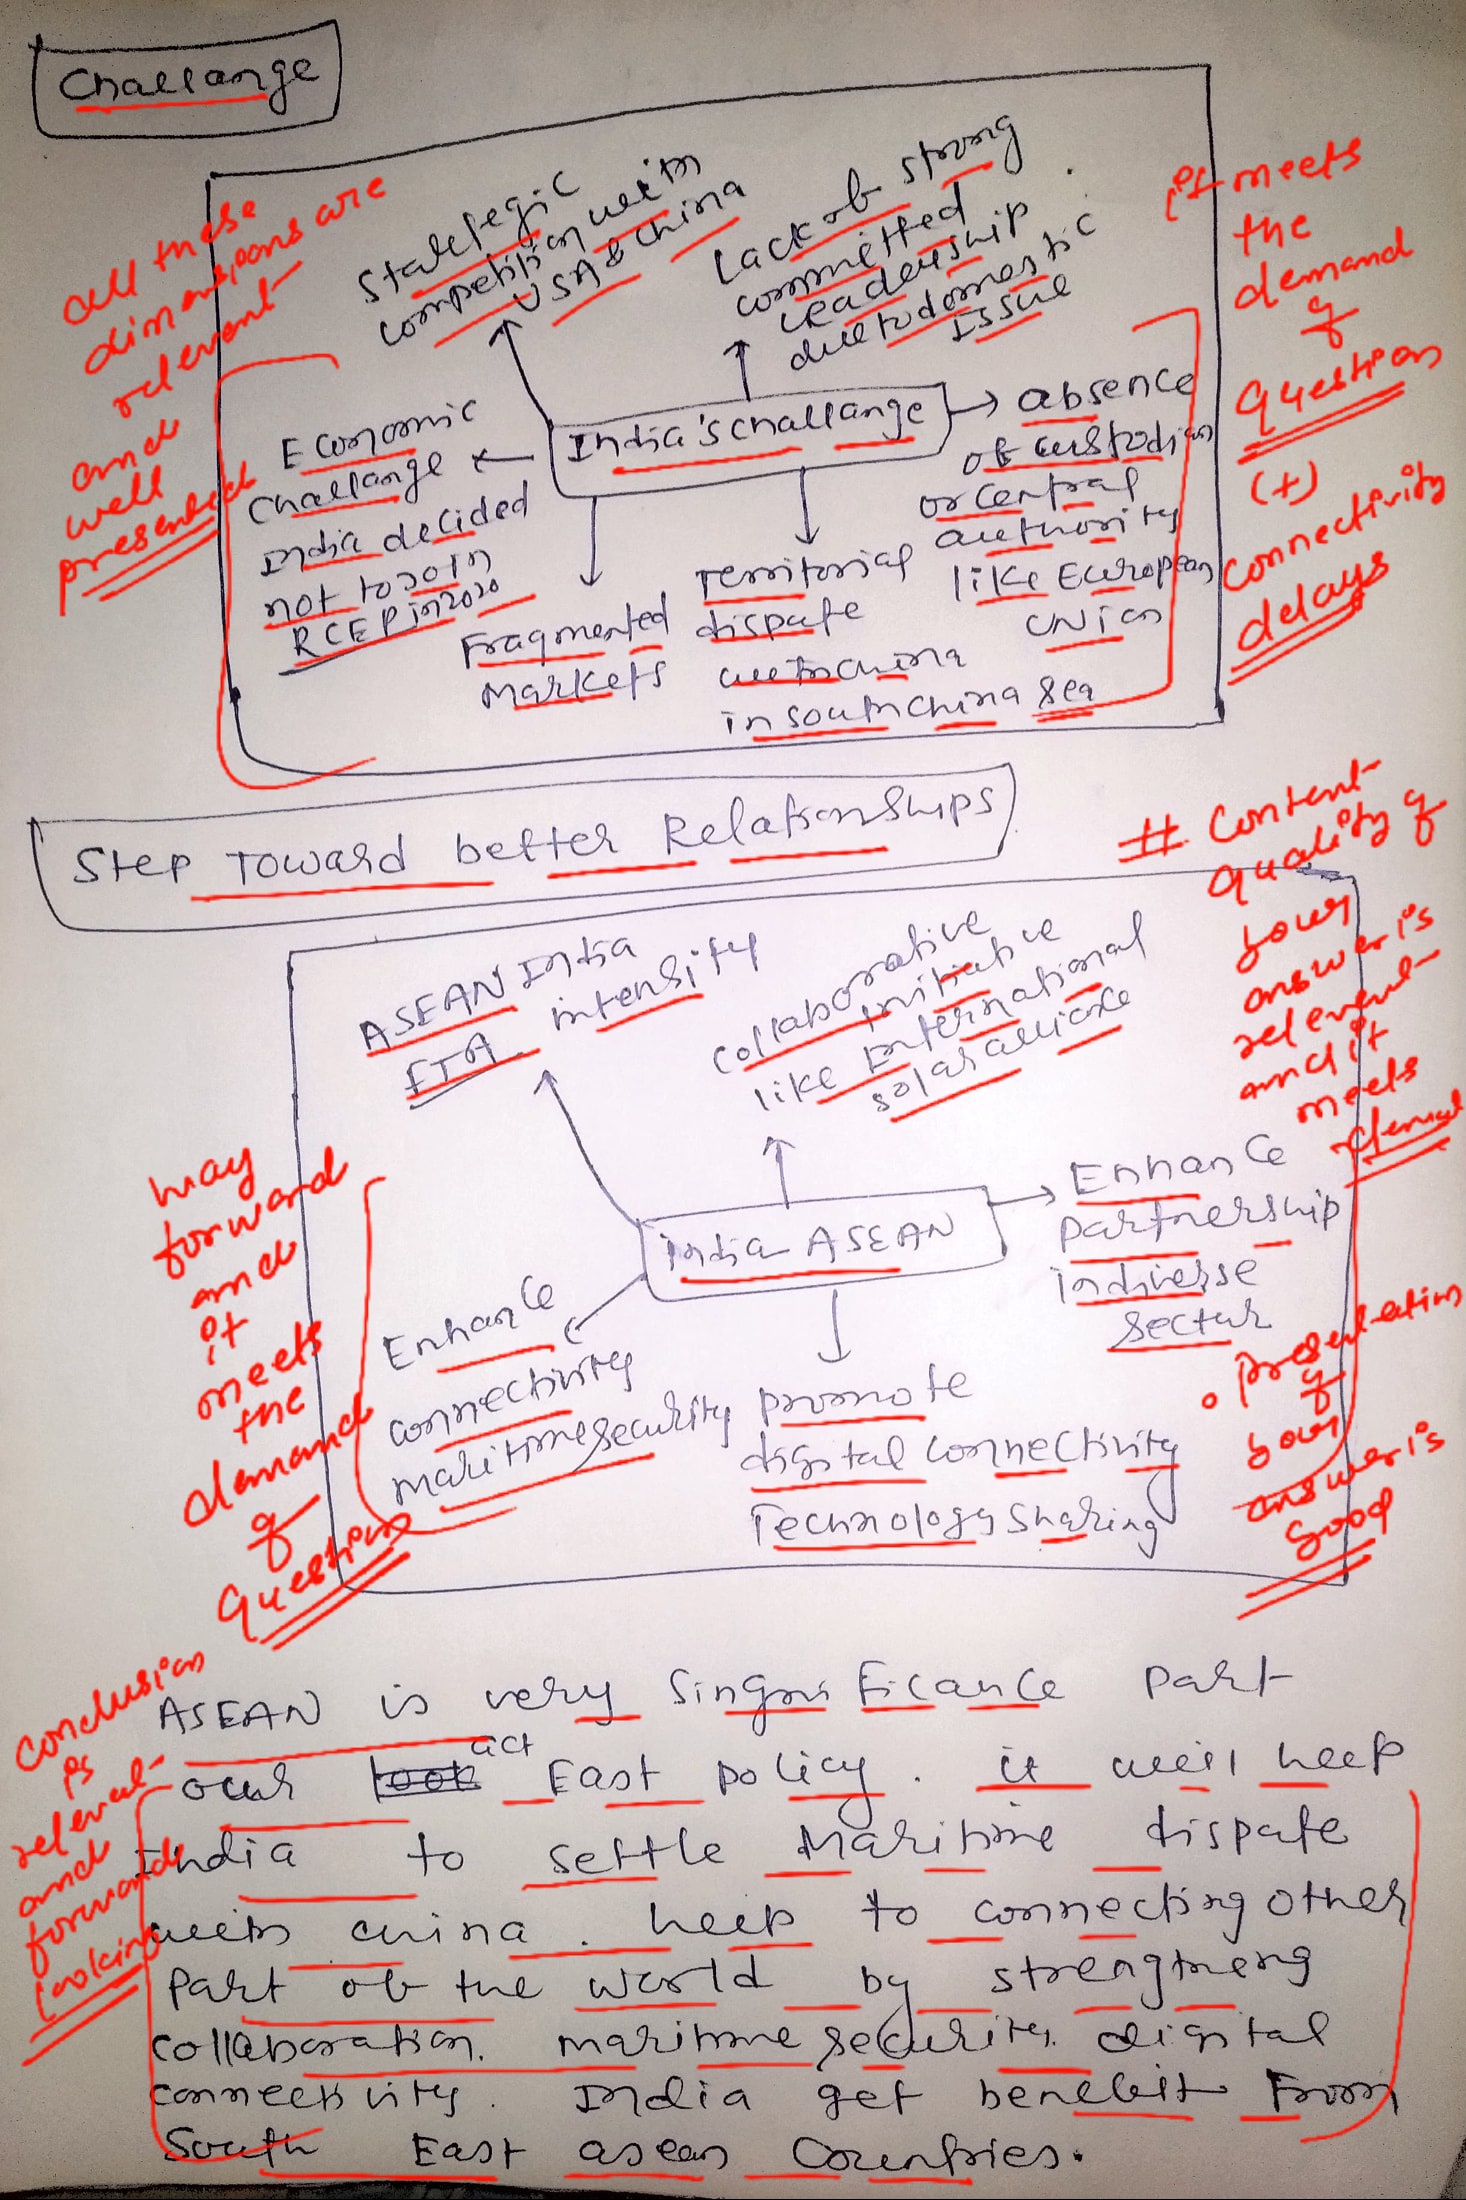 Challange
all these
dimensions are
relevent
and
well
presented
Statetegic
competition with
USA & China
Lack of strong
committed
leadership
due to domestic
Issue
it meets
the
demand
of
question
(+)
connectivity
delays
India's challange
Economic
challange
India decided
not to join
RCEP in 2020
Fragmented
Markets
Territorial
dispute
with china
in south china sea
absence
of custodian
or central
authority
like European
UNion
Step Toward better Relationships
# Content
quality of
your
answer is
relevent
and it
meets
demand
ASEAN India
FTA intensify
collaborative
initiative
like International
solar alliance
way
forward
and
it
meets
the
demand
of
question
India ASEAN
Enhance
Partnership
in diverse
Sector
Enhance
connectivity
maritime security
promote
digital connectivity
Technology sharing
• presentation
of
your
answer is
good
conclusion
is
relevent
and
forward
looking
ASEAN is very Singnificance part
our look act East policy. it will help
India to settle Maritime dispute
with china. help to connecting other
Part of the world by strengtheng
collaboration, maritime security, digital
connectivity. India get benefit From
South East asean Countries.